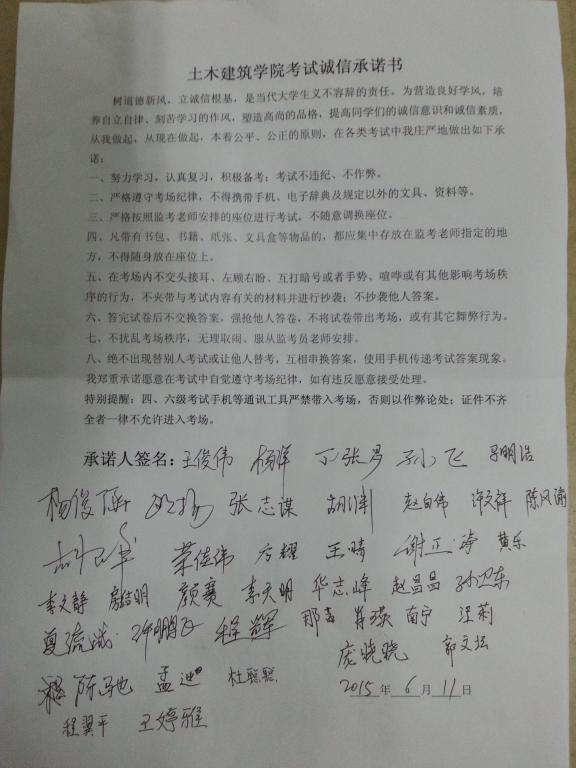 土木建筑学院考试诚信承诺书
树道德新风，立诚信根基，是当代大学生义不容辞的责任。为营造良好学风，培
养自立自律、刻苦学习的作风，塑造高尚的品格，提高同学们的诚信意识和诚信素质，
从我做起，从现在做起，本着公平、公正的原则，在各类考试中我庄严地做出如下承
诺：
一、努力学习，认真复习，积极备考；考试不违纪、不作弊。
二、严格遵守考场纪律，不得携带手机、电子辞典及规定以外的文具、资料等。
三、严格按照监考老师安排的座位进行考试，不随意调换座位。
四、凡带有书包、书籍、纸张、文具盒等物品的，都应集中存放在监考老师指定的地
方，不得随身放在座位上。
五、在考场内不交头接耳、左顾右盼、互打暗号或者手势、喧哗或有其他影响考场秩
序的行为，不夹带与考试内容有关的材料并进行抄袭；不抄袭他人答案。
六、答完试卷后不交换答案，强抢他人答卷，不将试卷带出考场，或有其它舞弊行为。
七、不扰乱考场秩序，无理取闹、服从监考员老师安排。
八、绝不出现替别人考试或让他人替考，互相串换答案，使用手机传递考试答案现象。
我郑重承诺愿意在考试中自觉遵守考场纪律，如有违反愿意接受处理。
特别提醒：四、六级考试手机等通讯工具严禁带入考场，否则以作弊论处；证件不齐
全者一律不允许进入考场。
承诺人签名：王俊伟 杨洋 孙飞
张志谋 胡洋 赵自伟 许文祥
荣佳伟 方耀 王晴 谢正涛 黄乐
李文静 房信明 颜赛 李天明 华志峰 赵昌昌 孙卫东
程辉 肖瑛 南宁 汪莉
庞晓晓 郭文坛
陈驰 孟迪 杜聪聪
2015年6月11日
程翼平 王婷雅